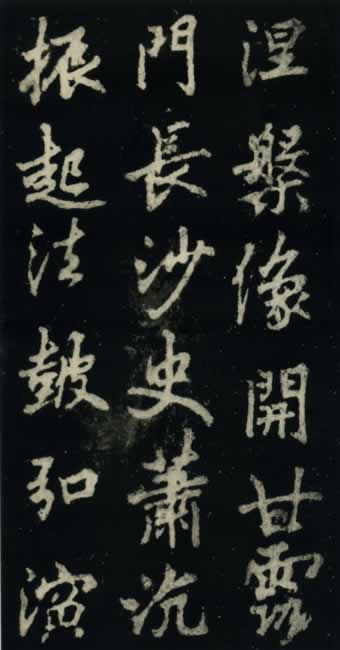 涅槃像開甘露
門長沙史蕭沉
振起法鼓弘演